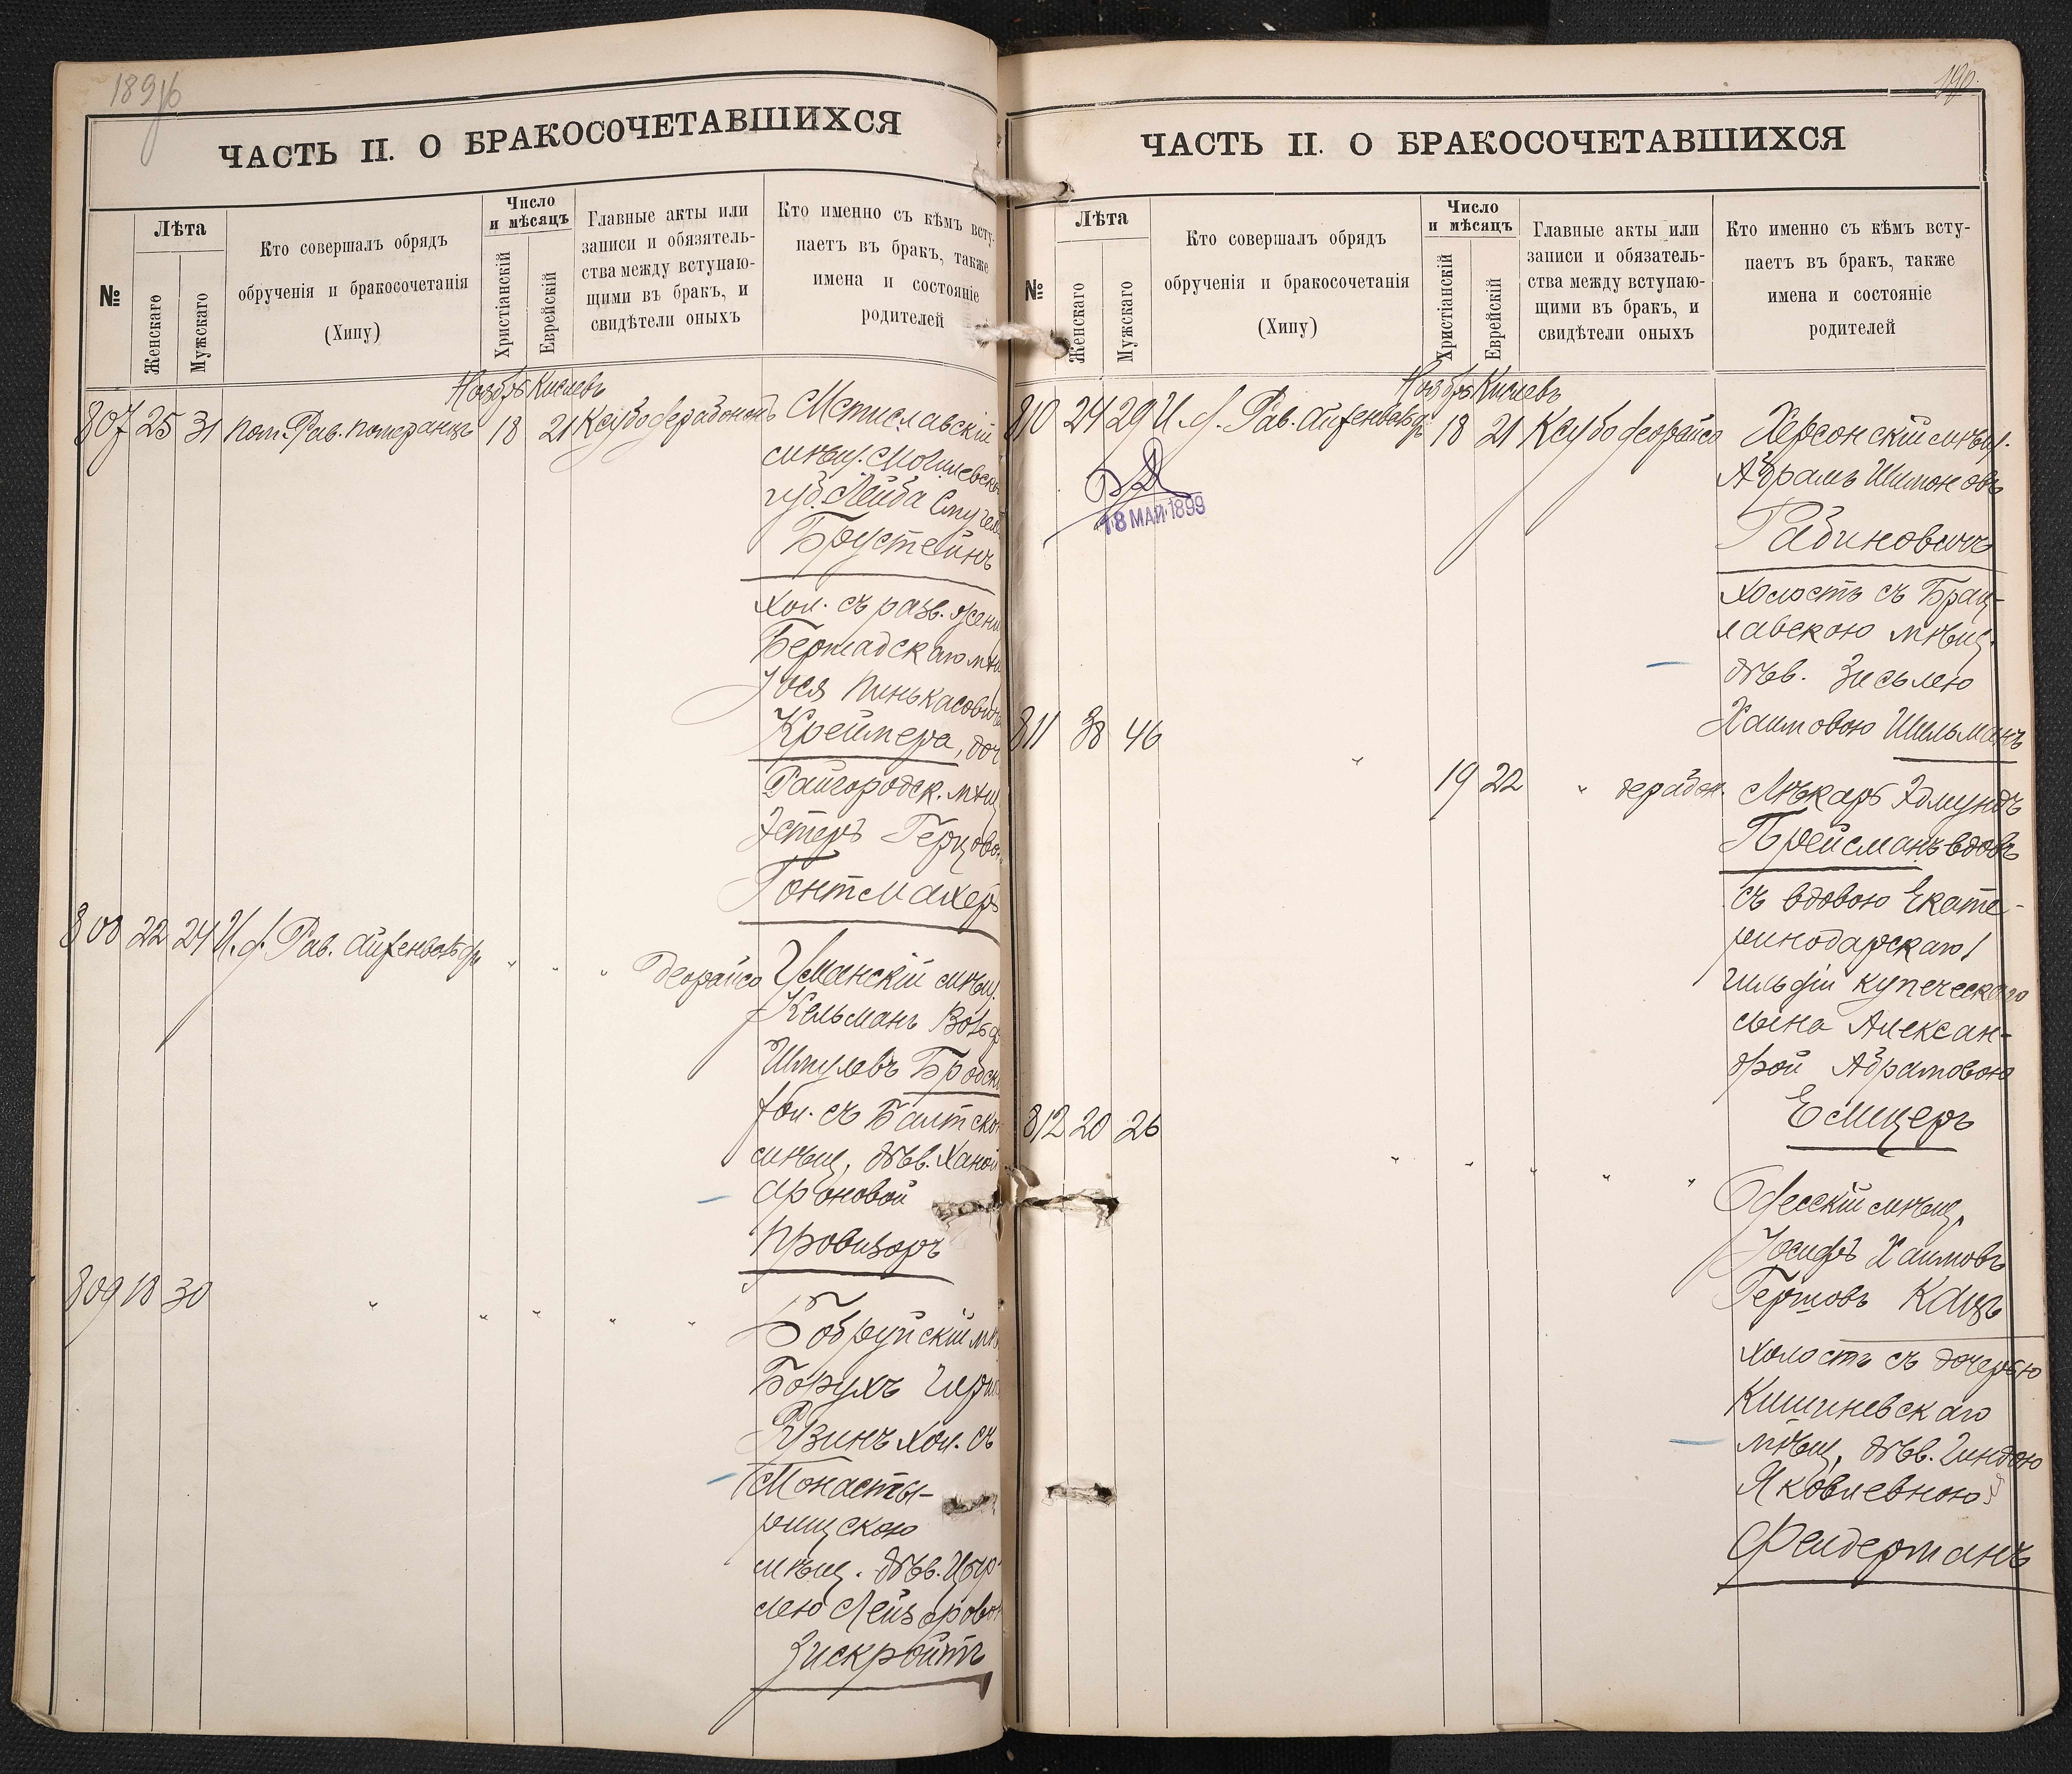 1896
ЧАСТЬ II. О БРАКОСОЧЕТАВШИХСЯ
№
Лѣта
Женскаго
Мужскаго
Кто совершалъ обрядъ
обрученія и бракосочетанія
(Хипу)
Число
и мѣсяцъ
Христіанскій
Еврейскій
Главные акты или
записи и обязатель-
ства между вступаю-
щими въ бракъ, и
свидѣтели оныхъ
Кто именно съ кѣмъ всту-
паетъ въ бракъ, также
имена и состояніе
родителей
Ноябрь Кислевъ
807 25 31 пом. Рав. Померанцъ 18 21
Мстиславскій
мѣщ. Могилевской
губ. Лейба
Брустейнъ
хол. съ разв. жен
Бершадскаго мѣщ
Іося Пинькасович
Креймера, доч
Райгородск. мѣщ
Эстеръ Герцово
Гонтмахеръ
808 22 24 И. д. Рав. Айзенвольфъ " " " деорайсо
Уманскій мѣщ.
Кельманъ Вольф
Шмулевъ Бродск
хол. съ Балтско
мѣщ. дѣв. Ханой
Ароновой
Провизоръ
809 18 30 " " " " "
Бобруйскій мѣ
Борухъ
Рѣзинъ хол. съ
Монасты-
рищскою
мѣщ. дѣв. Цыр-
лею Лейзорово
Зискройтъ
190
ЧАСТЬ II. О БРАКОСОЧЕТАВШИХСЯ
№
Лѣта
Женскаго
Мужскаго
Кто совершалъ обрядъ
обрученія и бракосочетанія
(Хипу)
Число
и мѣсяцъ
Христіанскій
Еврейскій
Главные акты или
записи и обязатель-
ства между вступаю-
щими въ бракъ, и
свидѣтели оныхъ
Кто именно съ кѣмъ всту-
паетъ въ бракъ, также
имена и состояніе
родителей
Ноябрь Кислевъ
810 24 29 И. д. Рав. Айзенвольфъ 18 21 Кеубо деорайсо
18 МАЙ 1899
Херсонскій мѣщ.
Абрамъ Шимоновъ
Рабиновичъ
холостъ съ Брац-
лавскою мѣщ.
дѣв. Зисьлею
Хаимовою Шильманъ
811 38 46 " 19 22 " дерабон.
Лѣкарь Эдмундъ
Прейсманъ вдовъ
съ вдовою Екате-
ринодарскаго I
гильдіи купеческаго
сына Алексан-
дрой Абрамовою
Емицеръ
812 20 26 " " " " "
Одесскій мѣщ.
Іосифъ Хаимовъ
Гершовъ Кацъ
холостъ съ дочерью
Кишиневскаго
мѣщ. дѣв. Гиндою
Яковлевною
Фельдерманъ